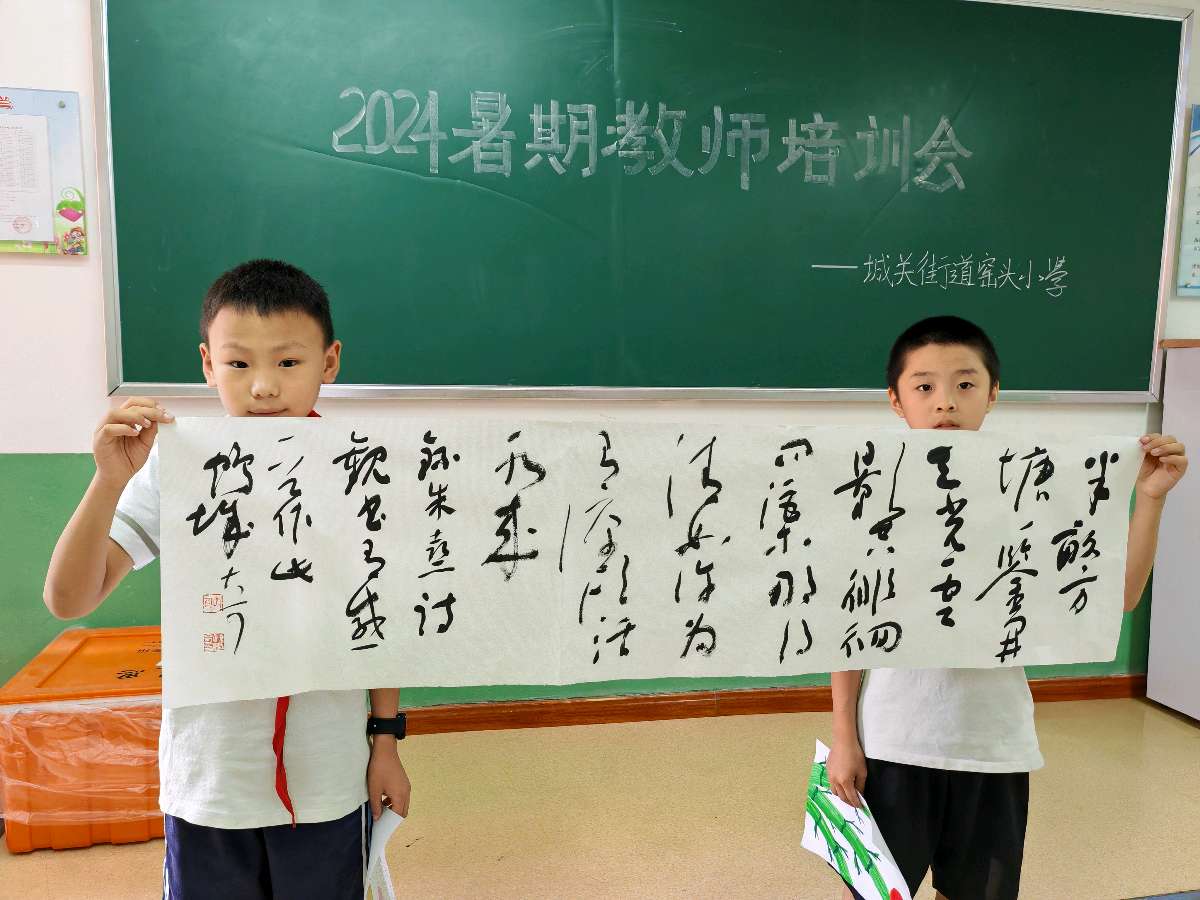 2024暑期教师培训会
——城关街道窑头小学
半畝方
塘一鑒開
天光雲
影共徘徊
问渠那得
清如许为
有源头活
水来
錄朱熹诗
觀書有感
作此